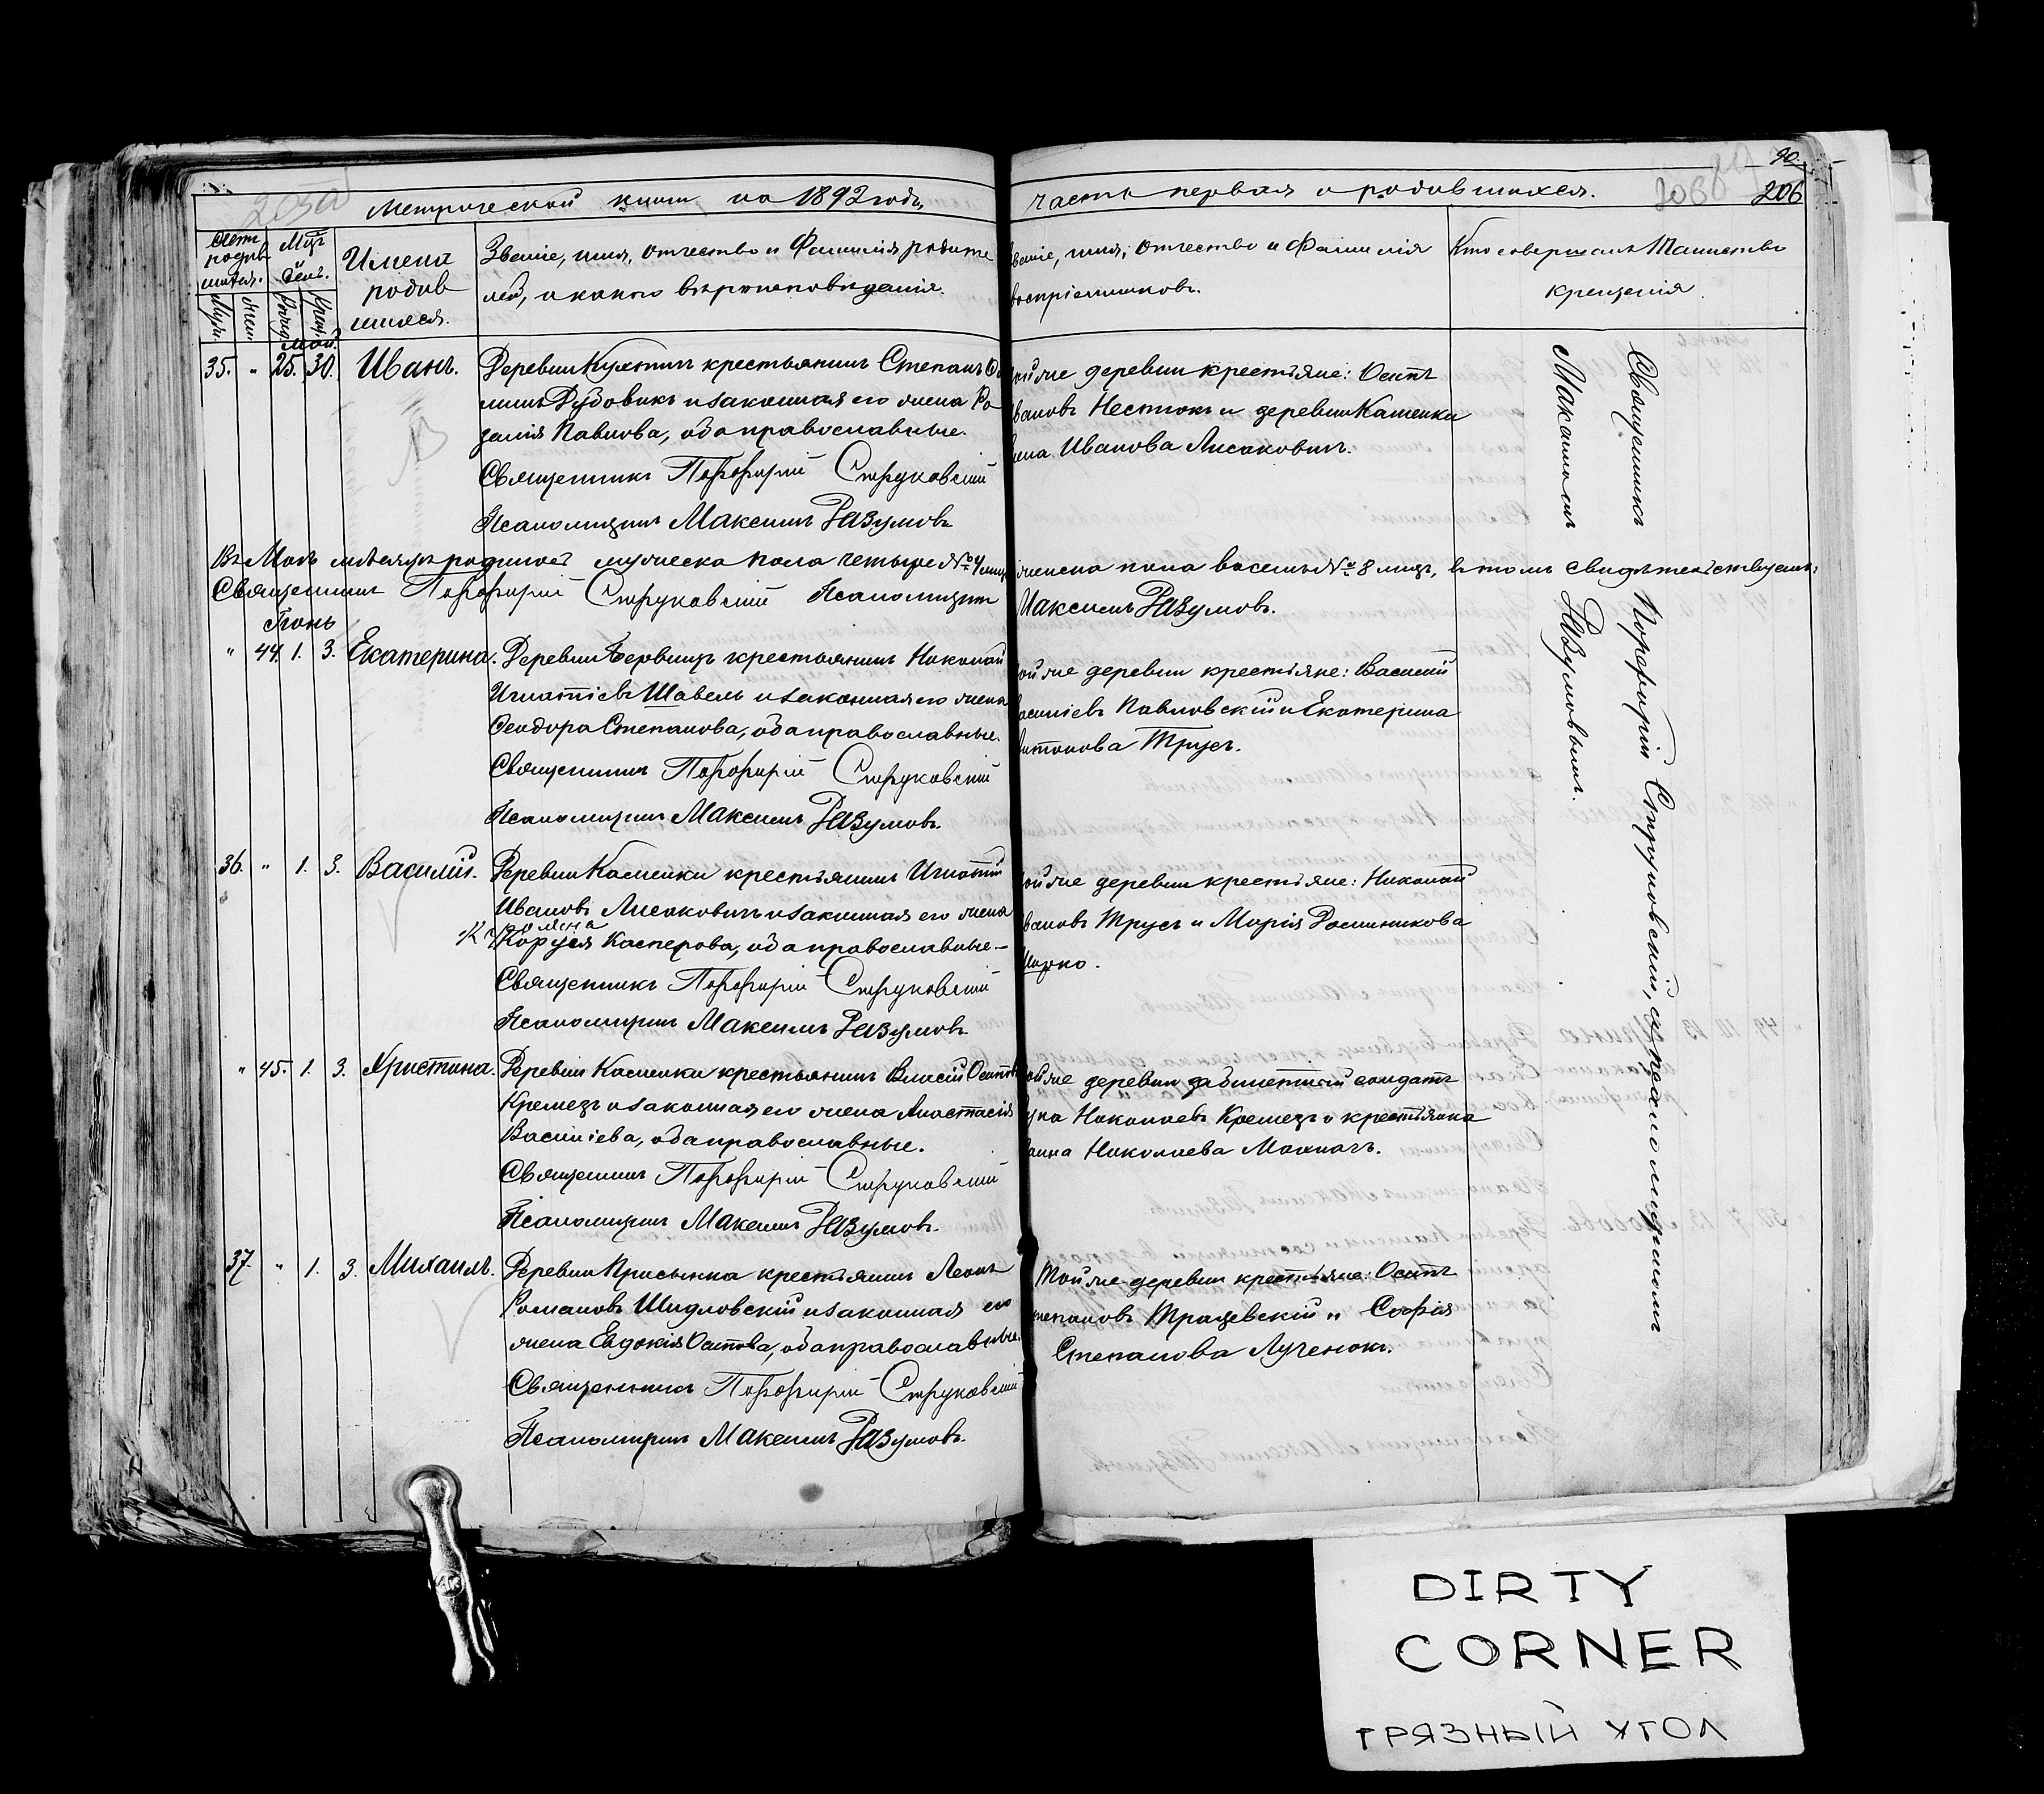 90.
206
Метрической книги на 1892 годъ,
часть первая о родившихся.
Счетъ родив шихся.
Мѣць и день.
Муж. Жен. Рожд. Крещ.
Имена родив шихся.
Званіе, имя, отчество и Фамилія родите
лей, и какого вѣроисповѣданія.
Званіе, имя, отчество и Фамилія
воспріемниковъ.
Кто совершалъ Таинство
крещенія.
Май.
35. " 25. 30. Иванъ.
крестьянинъ Степанъ
Дубовикъ и законная его жена Ро
залія Павлова, оба православные.
Священникъ Порфирій Струковскій
Псаломщикъ Максимъ Разумовъ
той же деревни крестьяне: Осипъ
Ивановъ Нестюкъ и деревни Каменки
Иванова Лисаковичъ.
Въ Маѣ мѣсяцѣ родилось мужеска пола четыре № 4 лица
женска пола восемь № 8 лицъ, въ томъ свидѣтельствуемъ:
Священникъ Порфирій Струковскій Псаломщикъ
Максимъ Разумовъ.
Іюнь
" 44. 1. 3. Екатерина.
крестьянинъ Николай
Игнатіевъ Шавель и законная его жена
Ѳеодора Степанова, оба православные.
Священникъ Порфирій Струковскій
Псаломщикъ Максимъ Разумовъ.
той же деревни крестьяне: Василій
Василіевъ Павловскій и Екатерина
Антонова Трусъ.
36. " 1. 3. Василій.
Деревни Каменки крестьянинъ Игнатій
Ивановъ Лисаковичъ и законная его жена
Касперова, оба православные
Священникъ Порфирій Струковскій
Псаломщикъ Максимъ Разумовъ
той же деревни крестьяне: Николай
Ивановъ Трусъ и Марія Доминикова
" 45. 1. 3. Христина.
Деревни Каменки крестьянинъ Власій Осиповъ
Кремезъ и законная его жена Анастасія
Василіева, оба православные.
Священникъ Порфирій Струковскій
Псаломщикъ Максимъ Разумовъ.
той же деревни солдатъ
Лука Николаевъ Кремезъ и крестьянка
Анна Николаева
37. " 1. 3. Михаилъ.
Деревни Присынка крестьянинъ Леонъ
Романовъ Шидловскій и законная его
жена Евдокія Осипова, оба православные.
Священникъ Порфирій Струковскій
Псаломщикъ Максимъ Разумовъ.
Той же деревни крестьяне: Осипъ
Степановъ Трацевскій и Софія
Степанова Лученокъ.
Священникъ Порфирій Струковскій, съ псаломщикомъ
Максимомъ Разумовымъ.
DIRTY
CORNER
ГРЯЗНЫЙ УГОЛ